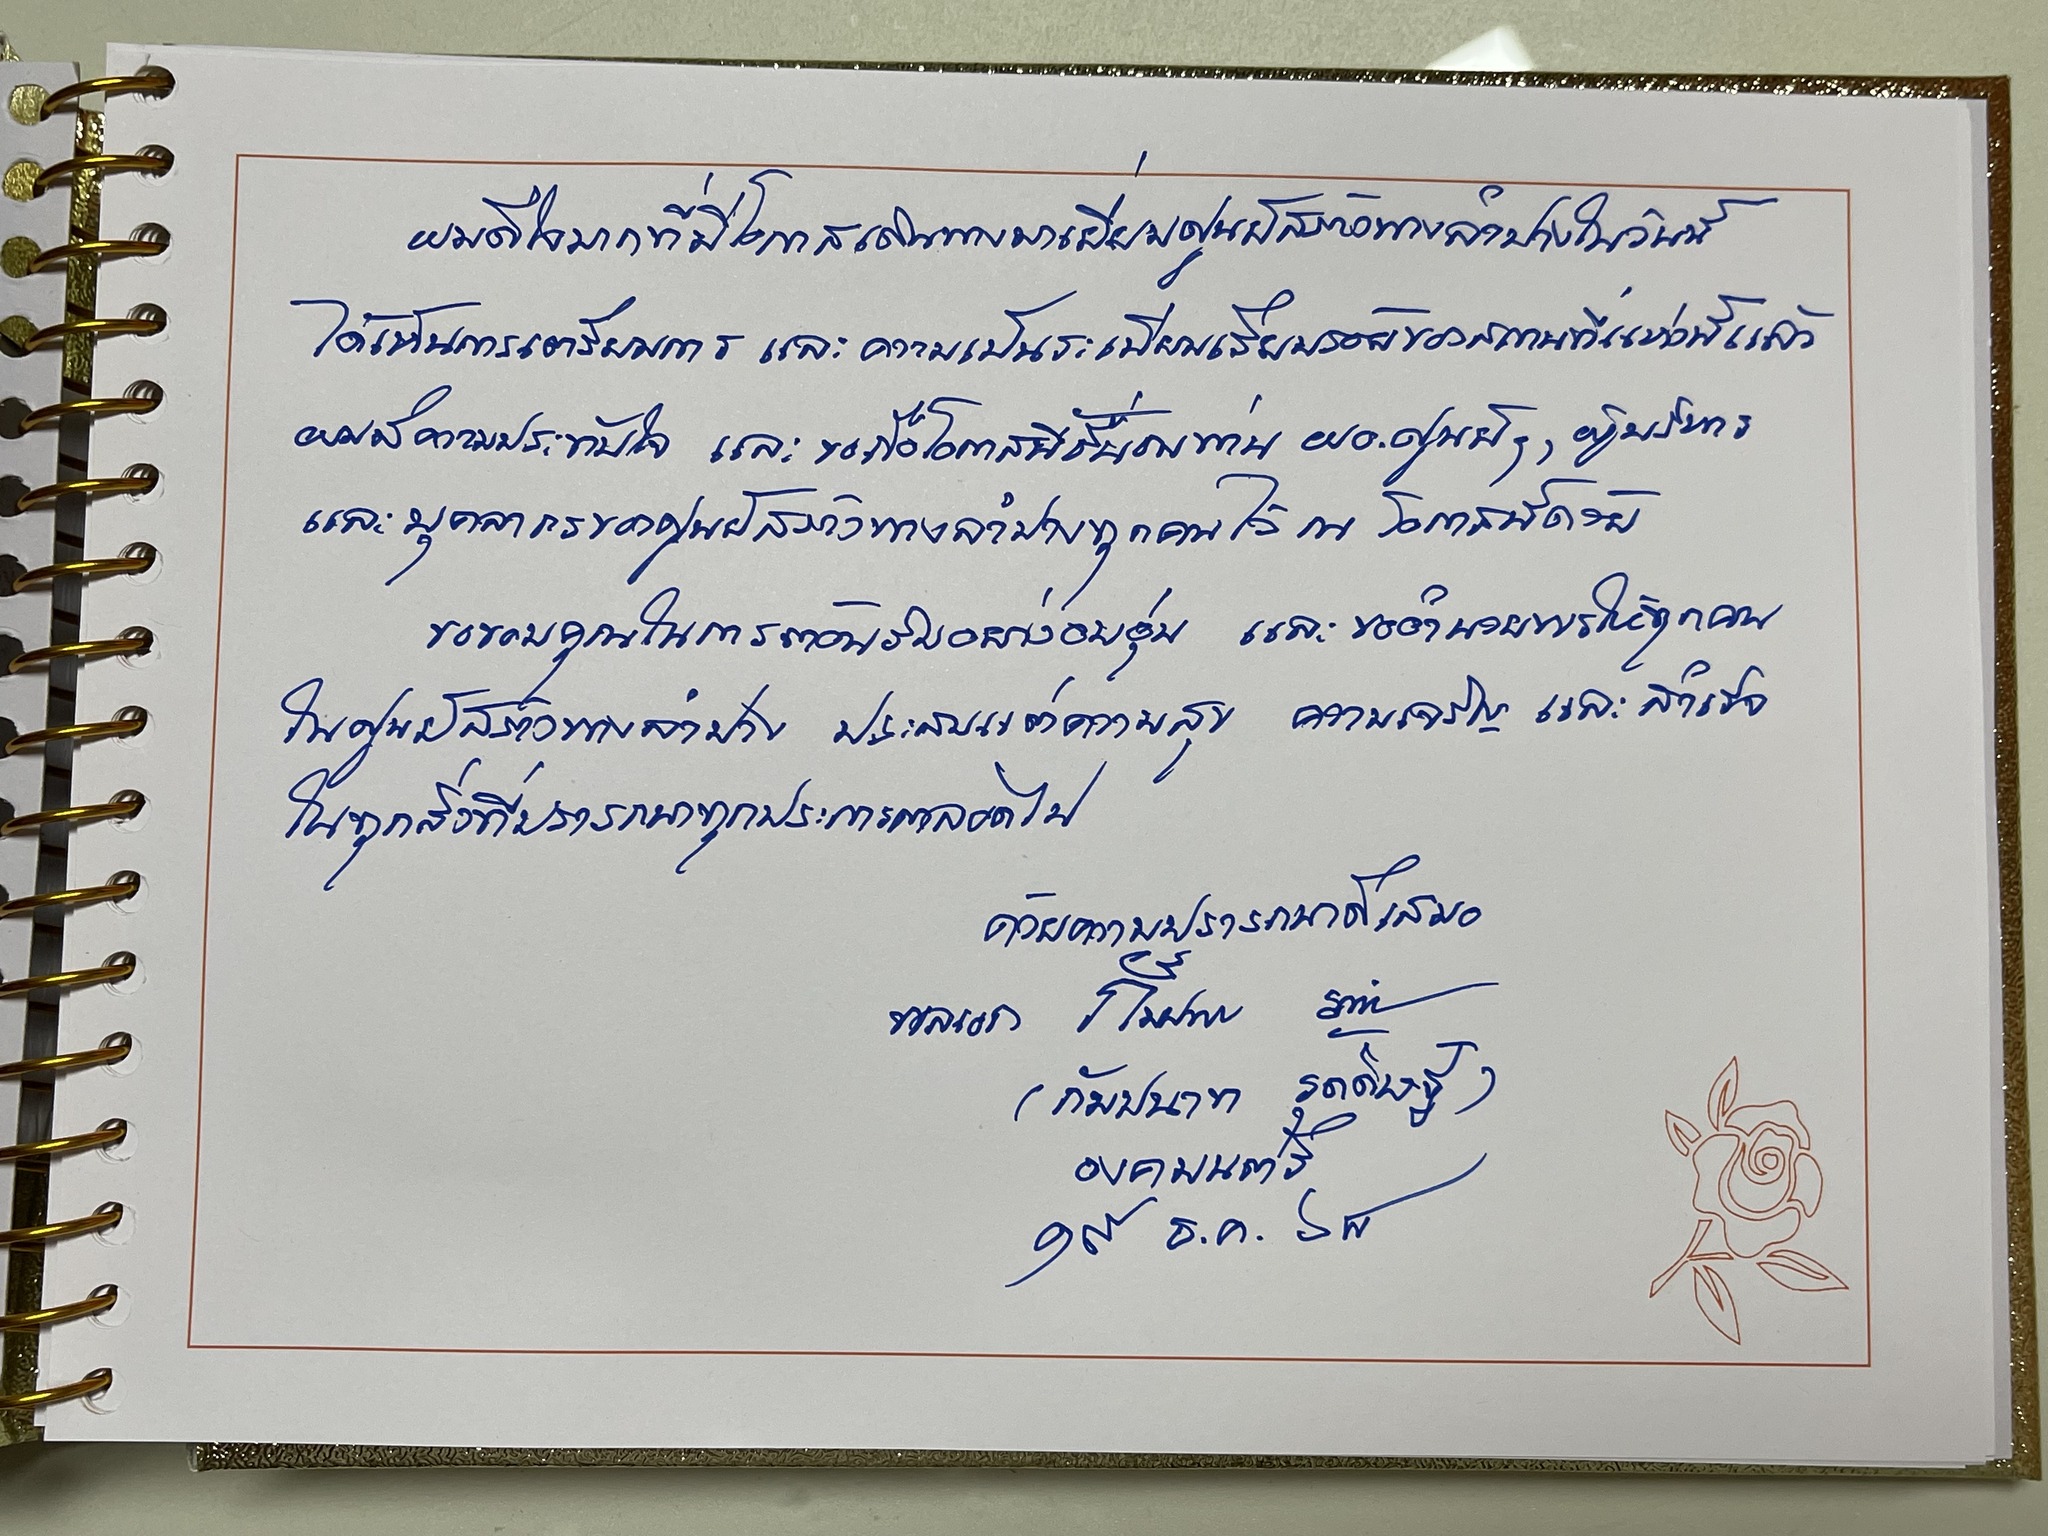 ผมดีใจมากที่มีโอกาสเดินทางมาเยี่ยมศูนย์สร้างทางลำปางในวันนี้
ได้เห็นการเตรียมการ และ ความเป็นระเบียบเรียบร้อยของสถานที่แห่งนี้แล้ว
ผมมีความประทับใจ และ ขอถือโอกาสนี้ชื่นชมท่าน ผอ.ศูนย์ฯ, ผู้บริหาร
และ บุคลากรของศูนย์สร้างทางลำปางทุกคนไว้ ณ โอกาสนี้ด้วย
ขอขอบคุณในการต้อนรับอย่างอบอุ่น และ ขออำนวยพรให้ทุกคน
ในศูนย์สร้างทางลำปาง ประสบแต่ความสุข ความเจริญ และ สำเร็จ
ในทุกสิ่งที่ปรารถนาทุกประการตลอดไป
ด้วยความปรารถนาดีเสมอ
พลเอก
(กัมปนาท รุดดิษฐ์)
องคมนตรี
๑๙ ธ.ค. ๖๘